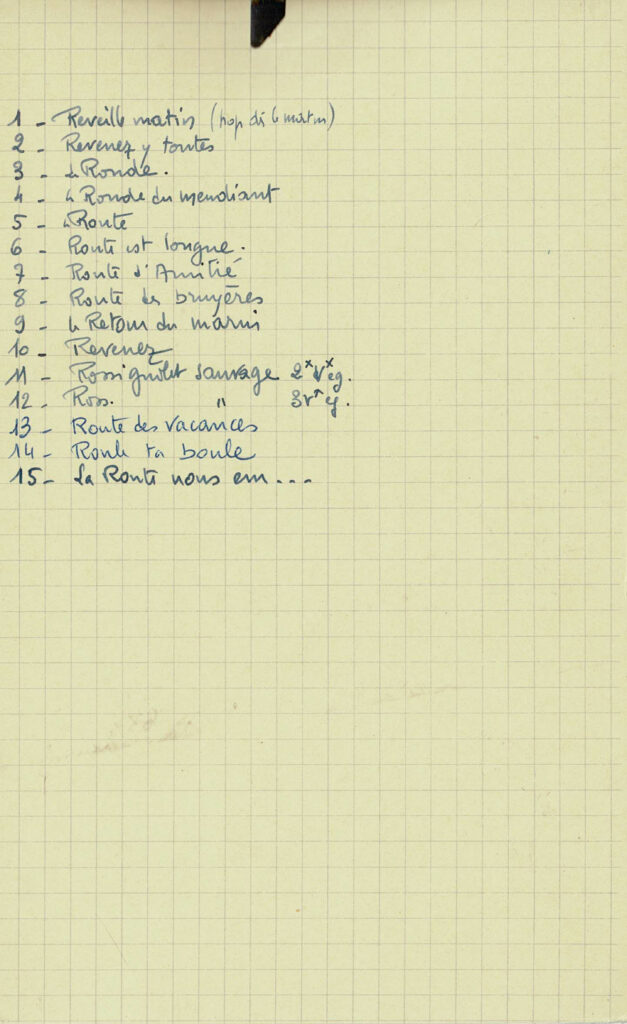 1 - Reveille matin (hop dès le matin)
2 - Revenez y toutes
3 - la Ronde.
4 - la Ronde du mendiant
5 - la Route
6 - Route est longue.
7 - Route d'Amitié
8 - Route des bruyères
9 - le Retour du marin
10 - Revenez
11 - Rossignolet sauvage 2x Vx eg.
12 - Ross. "
13 - Route des vacances
14 - Roule ta boule
15 - La Route nous em...